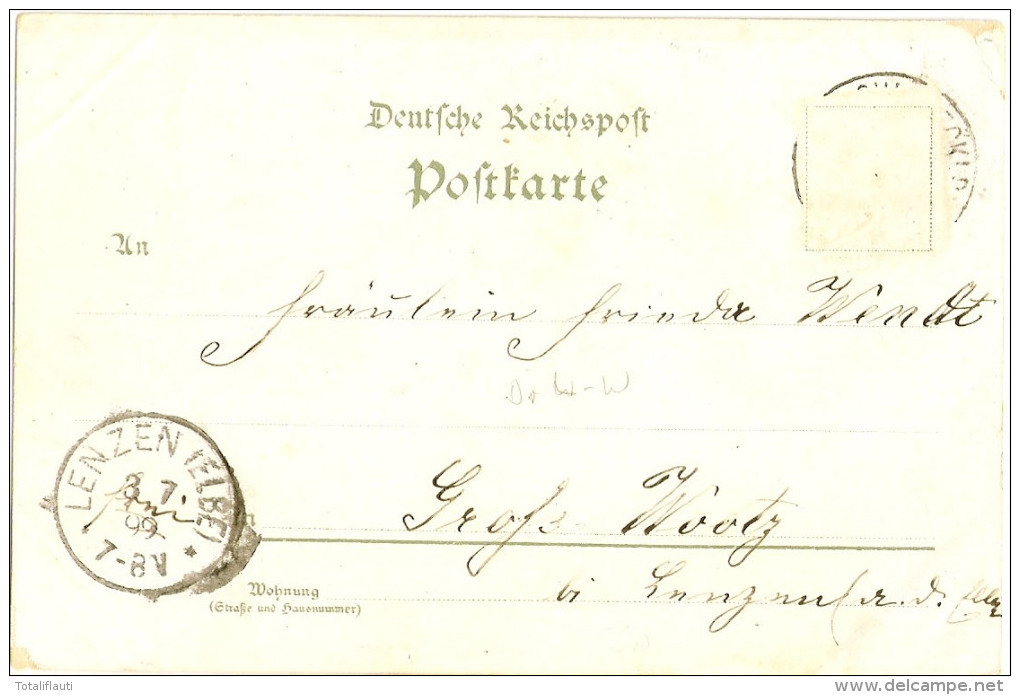 Deutsche Reichspost
Postkarte
An
Fräulein Frieda Wendt
LENZEN (ELBE)
7.
99
7-8V
Groß-Wootz
Wohnung
(Straße und Hausnummer)
bei Lenzen (a. d. Elbe
Totaliflauti
www.delcampe.net